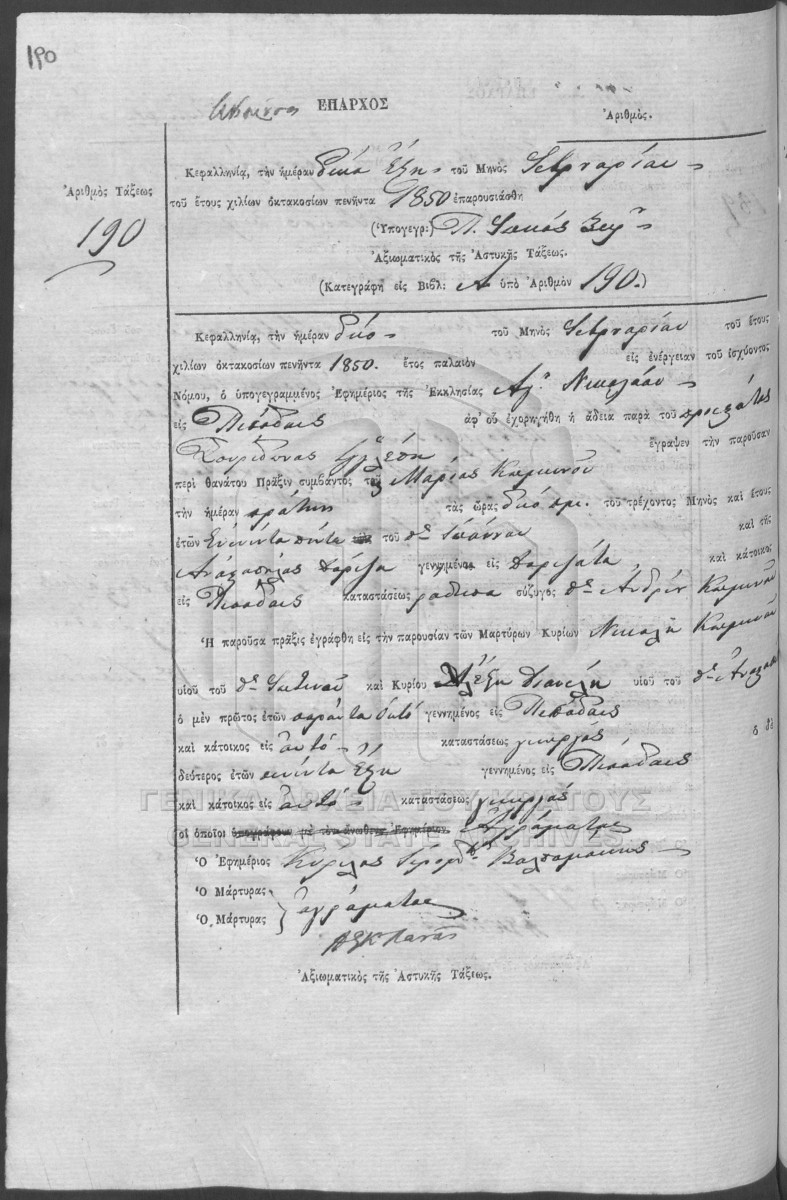 190
ΕΠΑΡΧΟΣ
Ἀριθμὸς.
Ἀριθμὸς Τάξεως
190
Κεφαλληνίᾳ, τὴν ἡμέραν δέκα ἕξη τοῦ Μηνὸς Φεβρουαρίου
τοῦ ἔτους χιλίων ὀκτακοσίων πενῆντα 1850 ἐπαρουσιάσθη
(Ὑπογεγρ:) Π.
Ἀξιωματικὸς τῆς Ἀστυκῆς Τάξεως.
(Κατεγράφη εἰς Βιβλ: Α ὑπὸ Ἀριθμὸν 190.)
Κεφαλληνίᾳ, τὴν ἡμέραν δύο τοῦ Μηνὸς Φεβρουαρίου τοῦ ἔτους
χιλίων ὀκτακοσίων πενῆντα 1850. ἔτος παλαιὸν εἰς ἐνέργειαν τοῦ ἰσχύοντος
Νόμου, ὁ ὑπογεγραμμένος Ἐφημέριος τῆς Ἐκκλησίας Ἁγ. Νικολάου
εἰς Πεσάδαις ἀφ' οὗ ἐχορηγήθη ἡ ἄδεια παρὰ τοῦ
ἔγραψεν τὴν παροῦσαν
περὶ θανάτου Πρᾶξιν συμβάντος τῆς Μαρίας Κομηνοῦ
τὴν ἡμέραν πρώτην τὰς ὥρας δύο τοῦ τρέχοντος Μηνὸς καὶ ἔτους
ἐτῶν πέντε τοῦ Ἰωάννου καὶ τῆς
γεννημένος εἰς καὶ κάτοικος
εἰς Πεσάδαις καταστάσεως σύζυγος Ἀνδρέα Κομηνοῦ
Ἡ παροῦσα πρᾶξις ἐγράφθη εἰς τὴν παρουσίαν τῶν Μαρτύρων Κυρίων Νικολῆ Κομηνοῦ
υἱοῦ τοῦ καὶ Κυρίου Ἀλέξη υἱοῦ τοῦ
ὁ μὲν πρῶτος ἐτῶν σαράντα ὀκτὸ γεννημένος εἰς Πεσάδαις
καὶ κάτοικος εἰς αὐτὸ καταστάσεως γεωργὸς ὁ δὲ
δεύτερος ἐτῶν ἕξη γεννημένος εἰς Πεσάδαις
καὶ κάτοικος εἰς αὐτὸ καταστάσεως γεωργὸς
οἱ ὁποῖοι ὑπογράφουν μὲ τὸν ἄνωθεν Ἐφημέριον. ἀγράματοι
Ὁ Ἐφημέριος Κύριλος
Ὁ Μάρτυρας
Ὁ Μάρτυρας
ἀγράματοι
Ἀξιωματικὸς τῆς Ἀστυκῆς Τάξεως.
ΓΕΝΙΚΑ ΑΡΧΕΙΑ ΤΟΥ ΚΡΑΤΟΥΣ
GENERAL STATE ARCHIVES